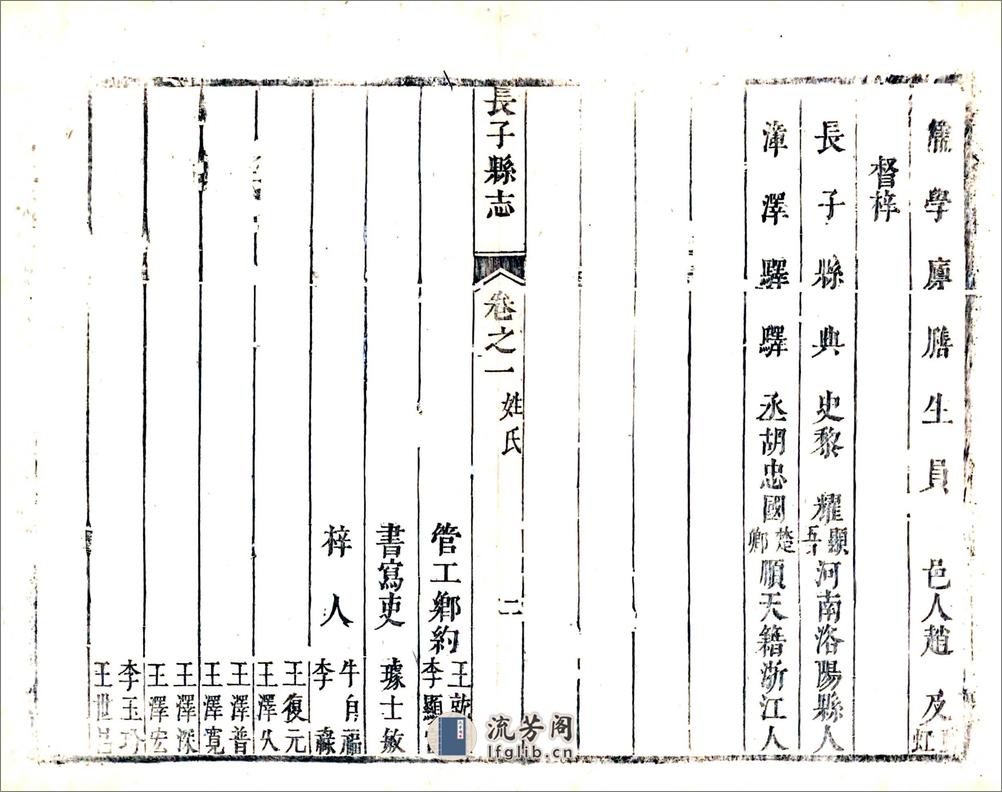 儒學廩膳生員 邑人趙 及
督梓
長子縣典史黎 耀顯吾河南洛陽縣人
漳澤驛驛丞胡忠國楚卿順天籍浙江人
長子縣志 卷之一 姓氏 二
管工鄉約 王 李顯
書寫吏 璩士敏
梓人 牛自 李
王復元
王澤久
王澤普
王澤寬
王澤深
王澤宏
李玉
王世
流芳阁
lfglib.cn